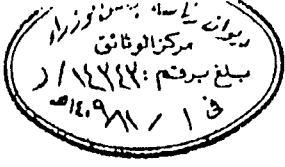 ديوان رئاسة مجلس الوزراء
مركز الوثائق
بلغ برقم : ١٤٣٤٣ / ر
في ١ / ١١ / ١٤٠٩هـ